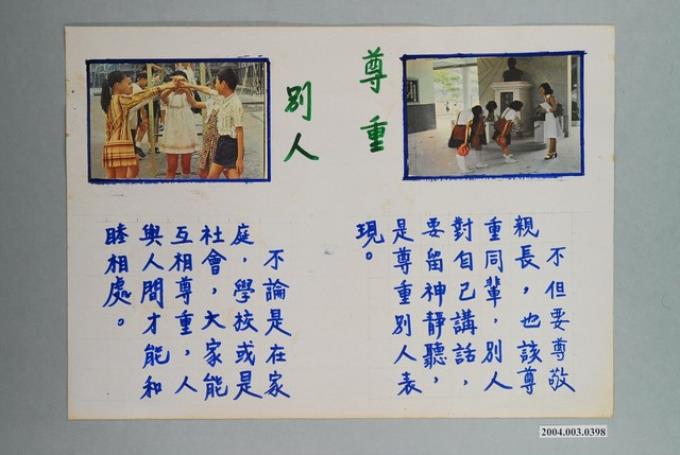 尊重
別人
不但要尊敬
親長，也該尊
重同輩，別人
對自己講話，
要留神靜聽，
是尊重別人表
現。
不論是在家
庭，學校或是
社會，大家能
互相尊重，人
與人間才能和
睦相處。
2004.003.0398